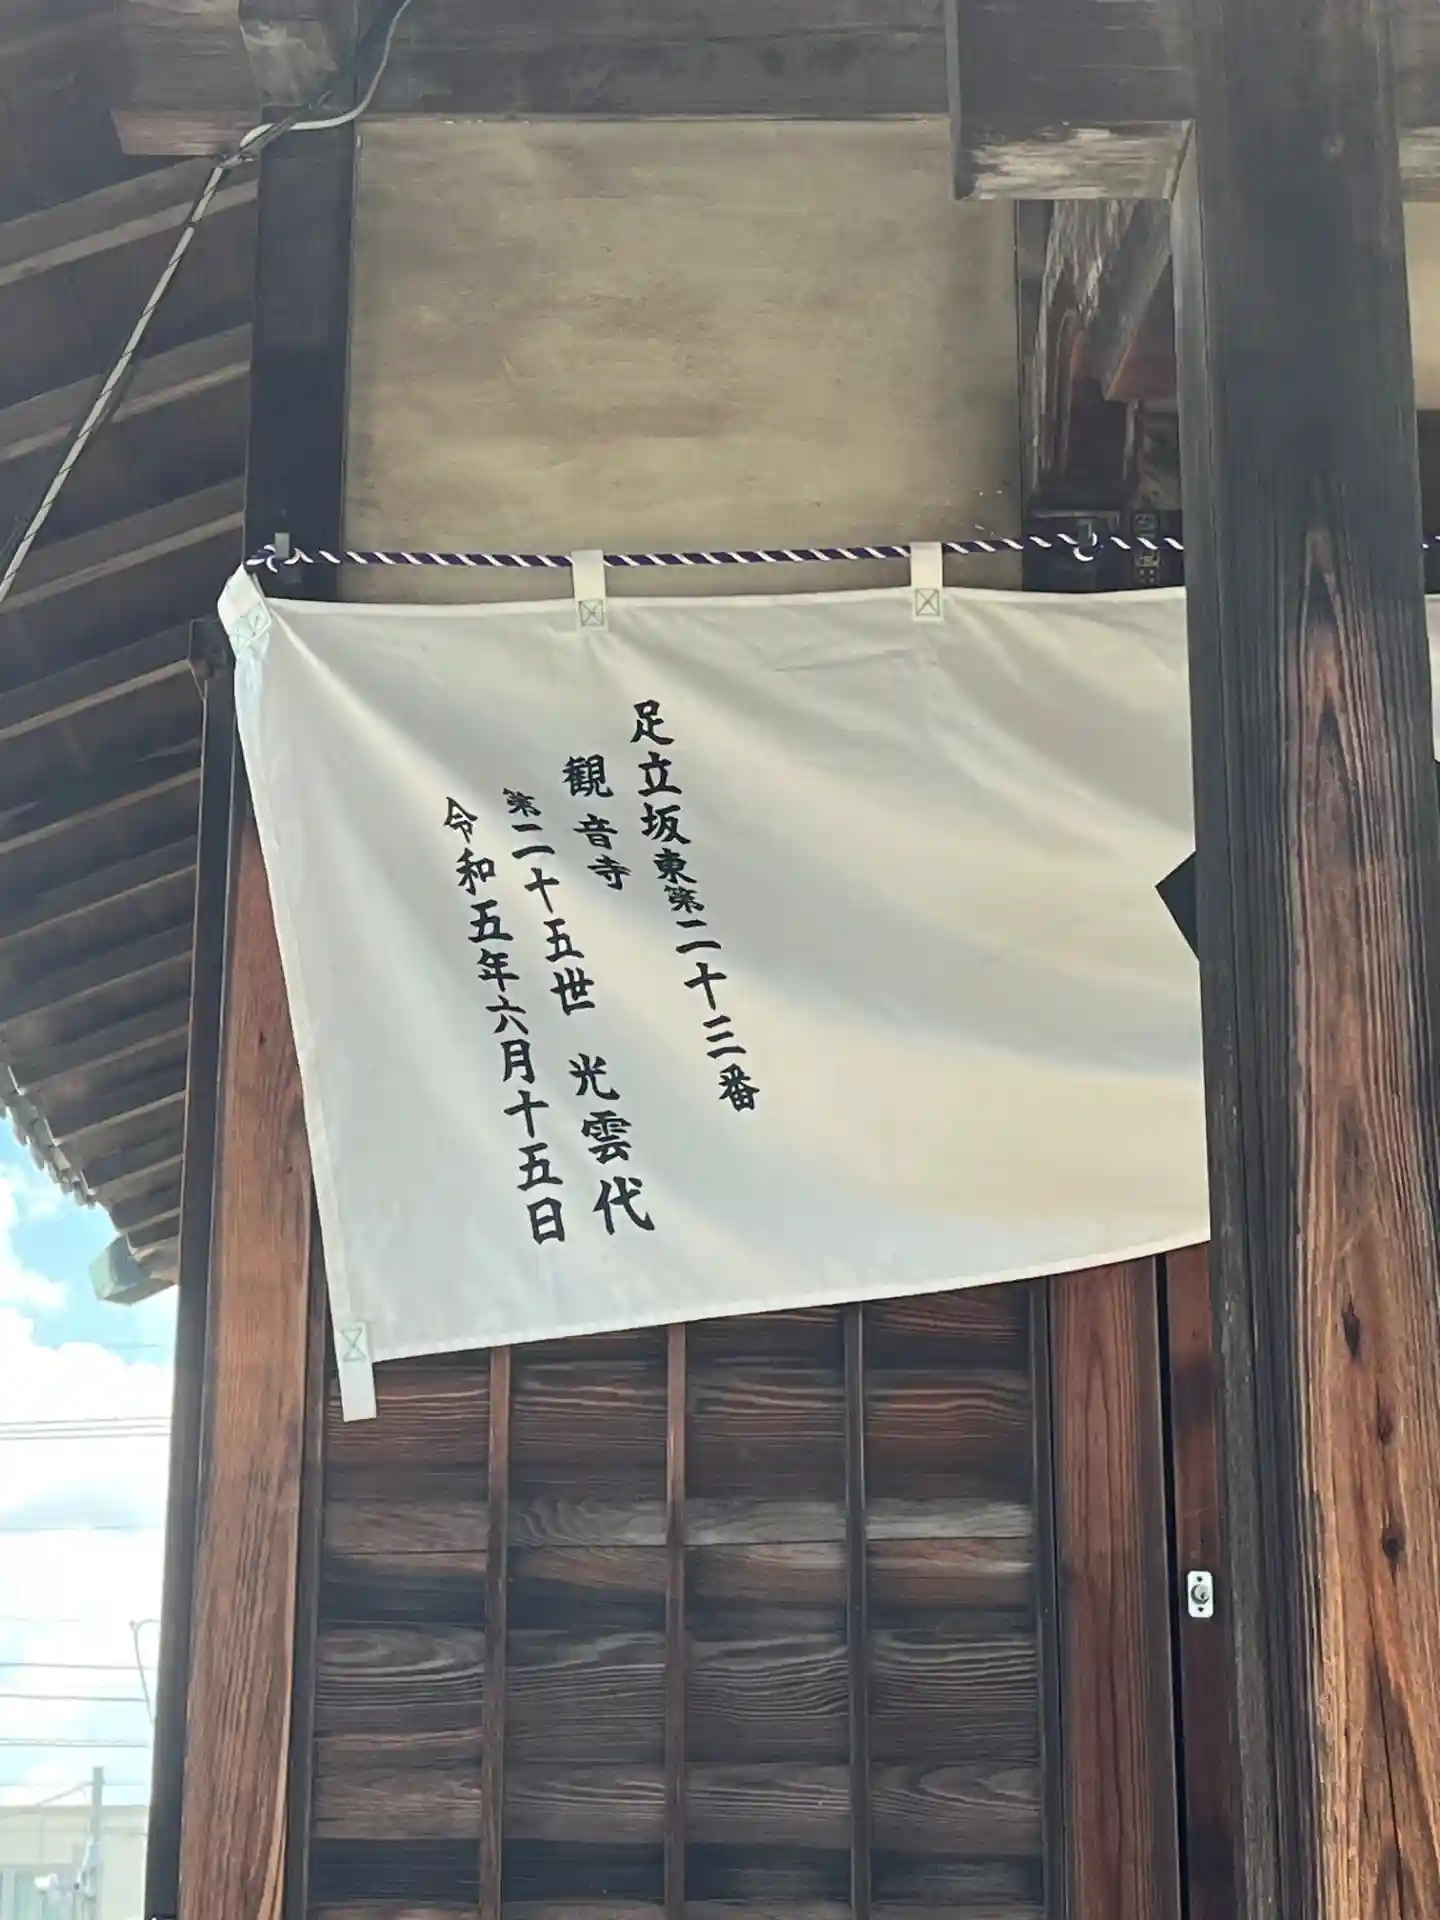 足立坂東第二十三番
観音寺
第二十五世 光雲代
令和五年六月十五日